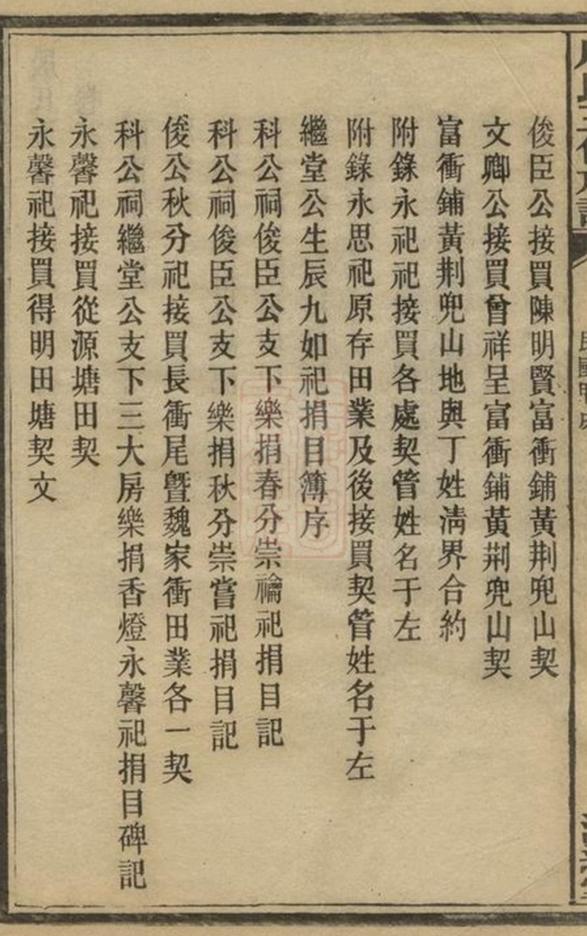 俊臣公接買陳明賢富衝鋪黃荆兜山契
文卿公接買曾祥呈富衝鋪黃荆兜山契
富衝鋪黃荆兜山地與丁姓淸界合約
附錄永祀祀接買各處契管姓名于左
附錄永思祀原存田業及後接買契管姓名于左
繼堂公生辰九如祀捐目簿序
科公祠俊臣公支下樂捐春分崇禴祀捐目記
科公祠俊臣公支下樂捐秋分崇嘗祀捐目記
俊公秋分祀接買長衝尾暨魏家衝田業各一契
科公祠繼堂公支下三大房樂捐香燈永馨祀捐目碑記
永馨祀接買從源塘田契
永馨祀接買得明田塘契文